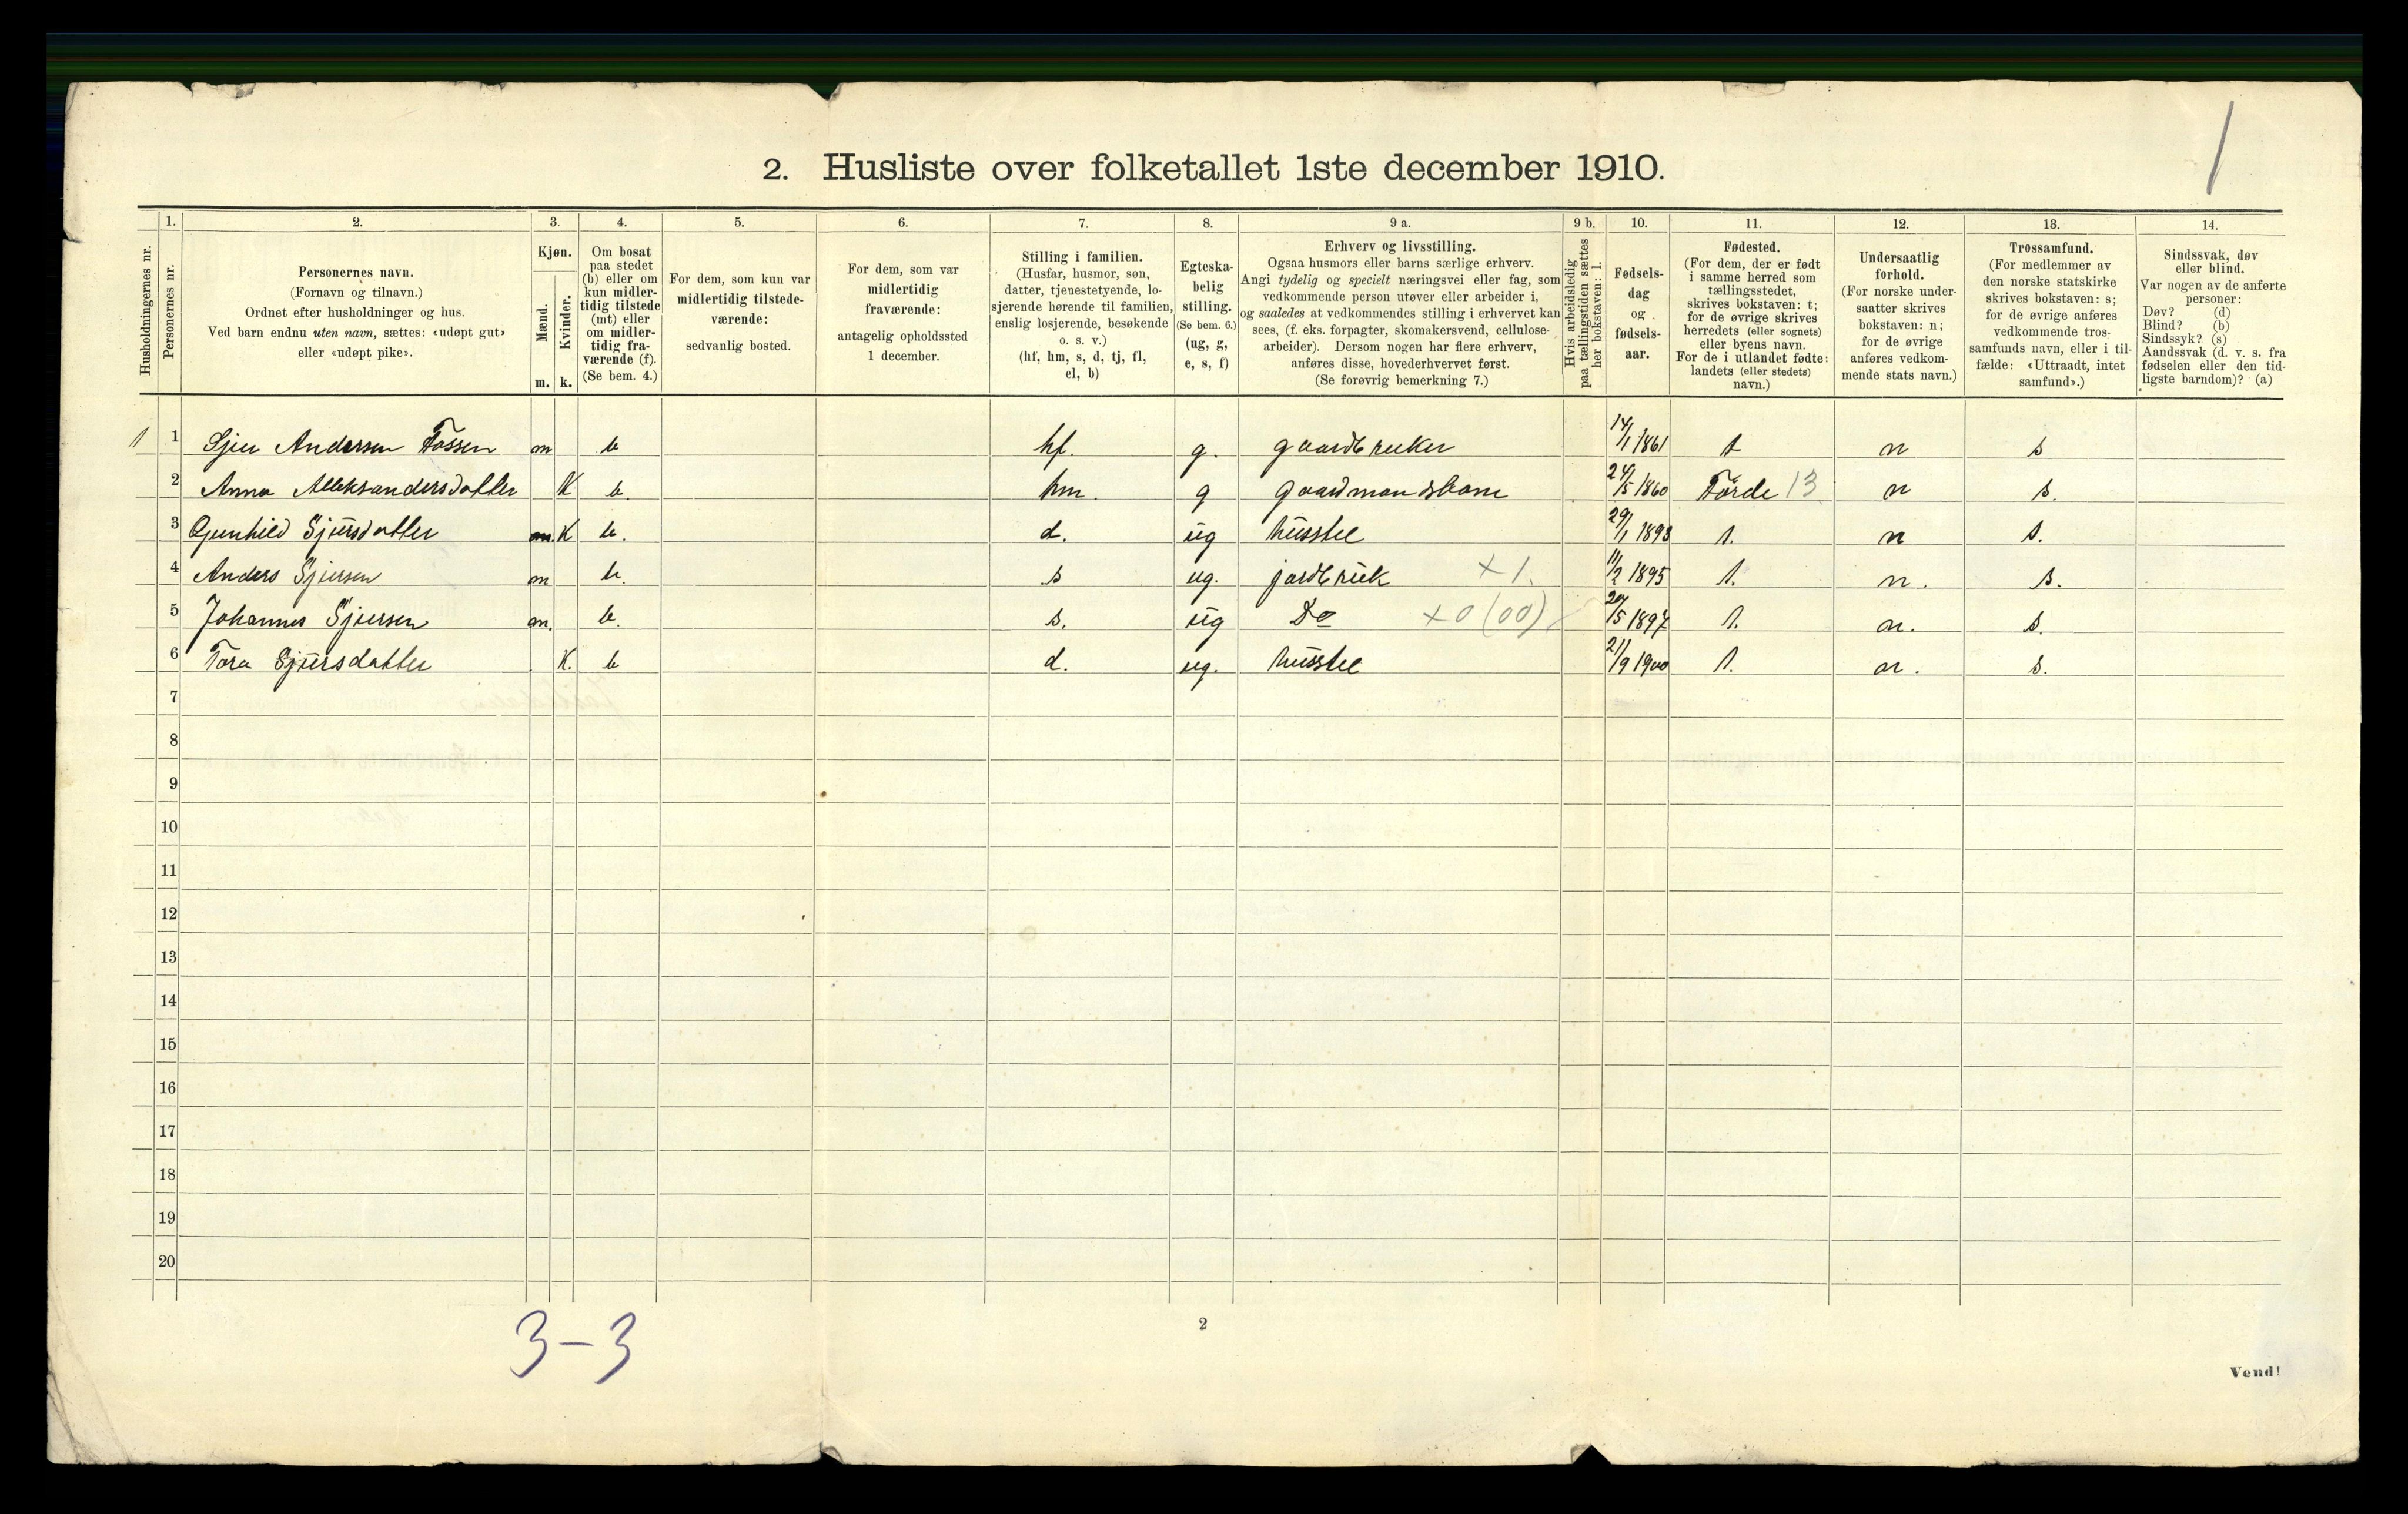 1
2. Husliste over folketallet 1ste december 1910.
1. 2. 3. 4. 5. 6. 7. 8. 9 a. 9 b. 10. 11. 12. 13. 14.
Husholdningernes nr.
Personernes nr.
Personernes navn.
(Fornavn og tilnavn.)
Ordnet efter husholdninger og hus.
Ved barn endnu uten navn, sættes: «udøpt gut»
eller «udøpt pike».
Kjøn.
Mænd.
m.
Kvinder.
k.
Om bosat
paa stedet
(b) eller om
kun midler-
tidig tilstede
(mt) eller
om midler-
tidig fra-
værende (f).
(Se bem. 4.)
For dem, som kun var
midlertidig tilstede-
værende:
sedvanlig bosted.
For dem, som var
midlertidig
fraværende:
antagelig opholdssted
1 december.
Stilling i familien.
(Husfar, husmor, søn,
datter, tjenestetyende, lo-
sjerende hørende til familien,
enslig losjerende, besøkende
o. s. v.)
(hf, hm, s, d, tj, fl,
el, b)
Egteska-
belig
stilling.
(Se bem. 6.)
(ug, g,
e, s, f)
Erhverv og livsstilling.
Ogsaa husmors eller barns særlige erhverv.
Angi tydelig og specielt næringsvei eller fag, som
vedkommende person utøver eller arbeider i,
og saaledes at vedkommendes stilling i erhvervet kan
sees, (f. eks. forpagter, skomakersvend, cellulose-
arbeider). Dersom nogen har flere erhverv,
anføres disse, hovederhvervet først.
(Se forøvrig bemerkning 7.)
Hvis arbeidsledig
paa tællingstiden sættes
her bokstaven: l.
Fødsels-
dag
og
fødsels-
aar.
Fødested.
(For dem, der er født
i samme herred som
tællingsstedet,
skrives bokstaven: t;
for de øvrige skrives
herredets (eller sognets)
eller byens navn.
For de i utlandet fødte:
landets (eller stedets)
navn.)
Undersaatlig
forhold.
(For norske under-
saatter skrives
bokstaven: n;
for de øvrige
anføres vedkom-
mende stats navn.)
Trossamfund.
(For medlemmer av
den norske statskirke
skrives bokstaven: s;
for de øvrige anføres
vedkommende tros-
samfunds navn, eller i til-
fælde: «Uttraadt, intet
samfund».)
Sindssvak, døv
eller blind.
Var nogen av de anførte
personer:
Døv? (d)
Blind? (b)
Sindssyk? (s)
Aandssvak (d. v. s. fra
fødselen eller den tid-
ligste barndom)? (a)
1 1 Sjur Andersen Fossen m b hf. g. gaardbruker 14/1 1861 t n s
2 Anna Alleksandersdatter K b. hm. g gaardmandskone 24/5 1860 Førde 13 n s.
3 Gunhild Sjursdatter m. K b. d. ug husstel 29/1 1893 t. n s.
4 Anders Sjursen m b. s ug. jordbruk x 1. 11/2 1895 t. n. s.
5 Johannes Sjursen m. b. s. ug Do x 0 (00) 20/5 1897 t. n. s.
6 Tora Sjursdatter K. b d. ug. husstel 21/9 1900 t. n. s.
7
8
9
10
11
12
13
14
15
16
17
18
19
20
3-3
2
Vend!